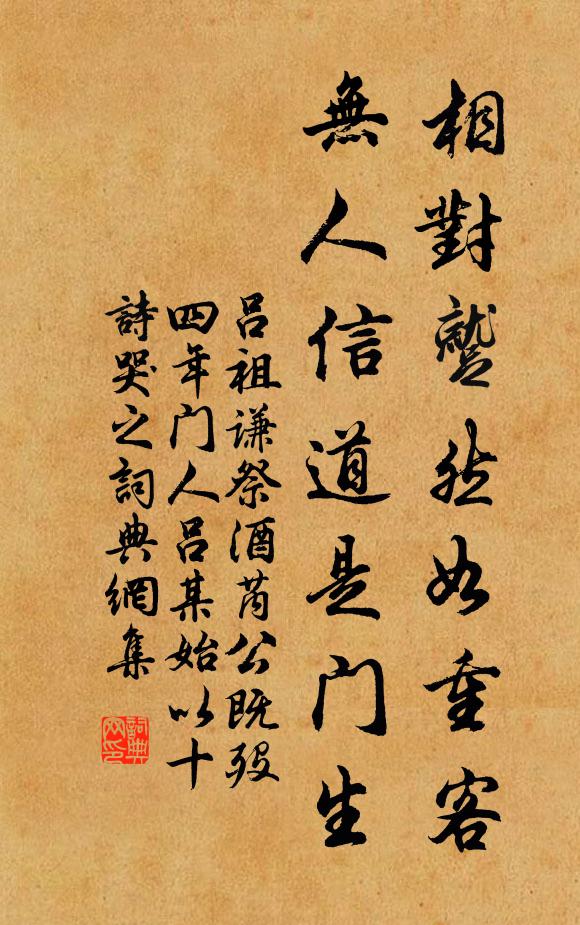 相對蹵然如重客
無人信道是门生
呂祖谦祭酒芮公既殁
四年门人呂某始以十
詩哭之詞典網集
詞典网印